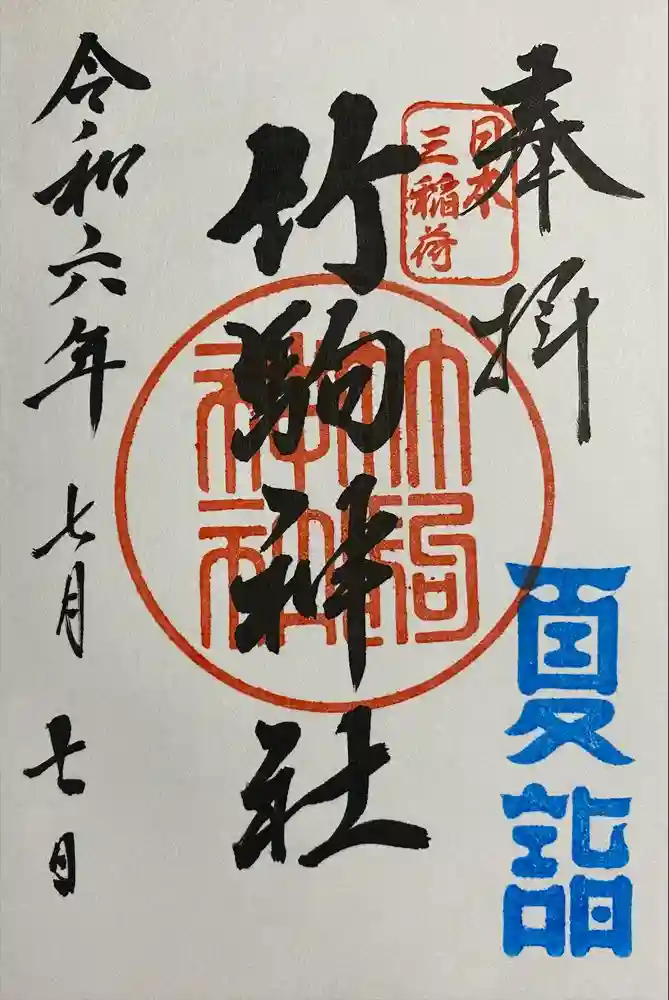 奉拝
日本
三稲荷
竹駒神社
竹駒
神社
夏詣
令和六年 七月 七日